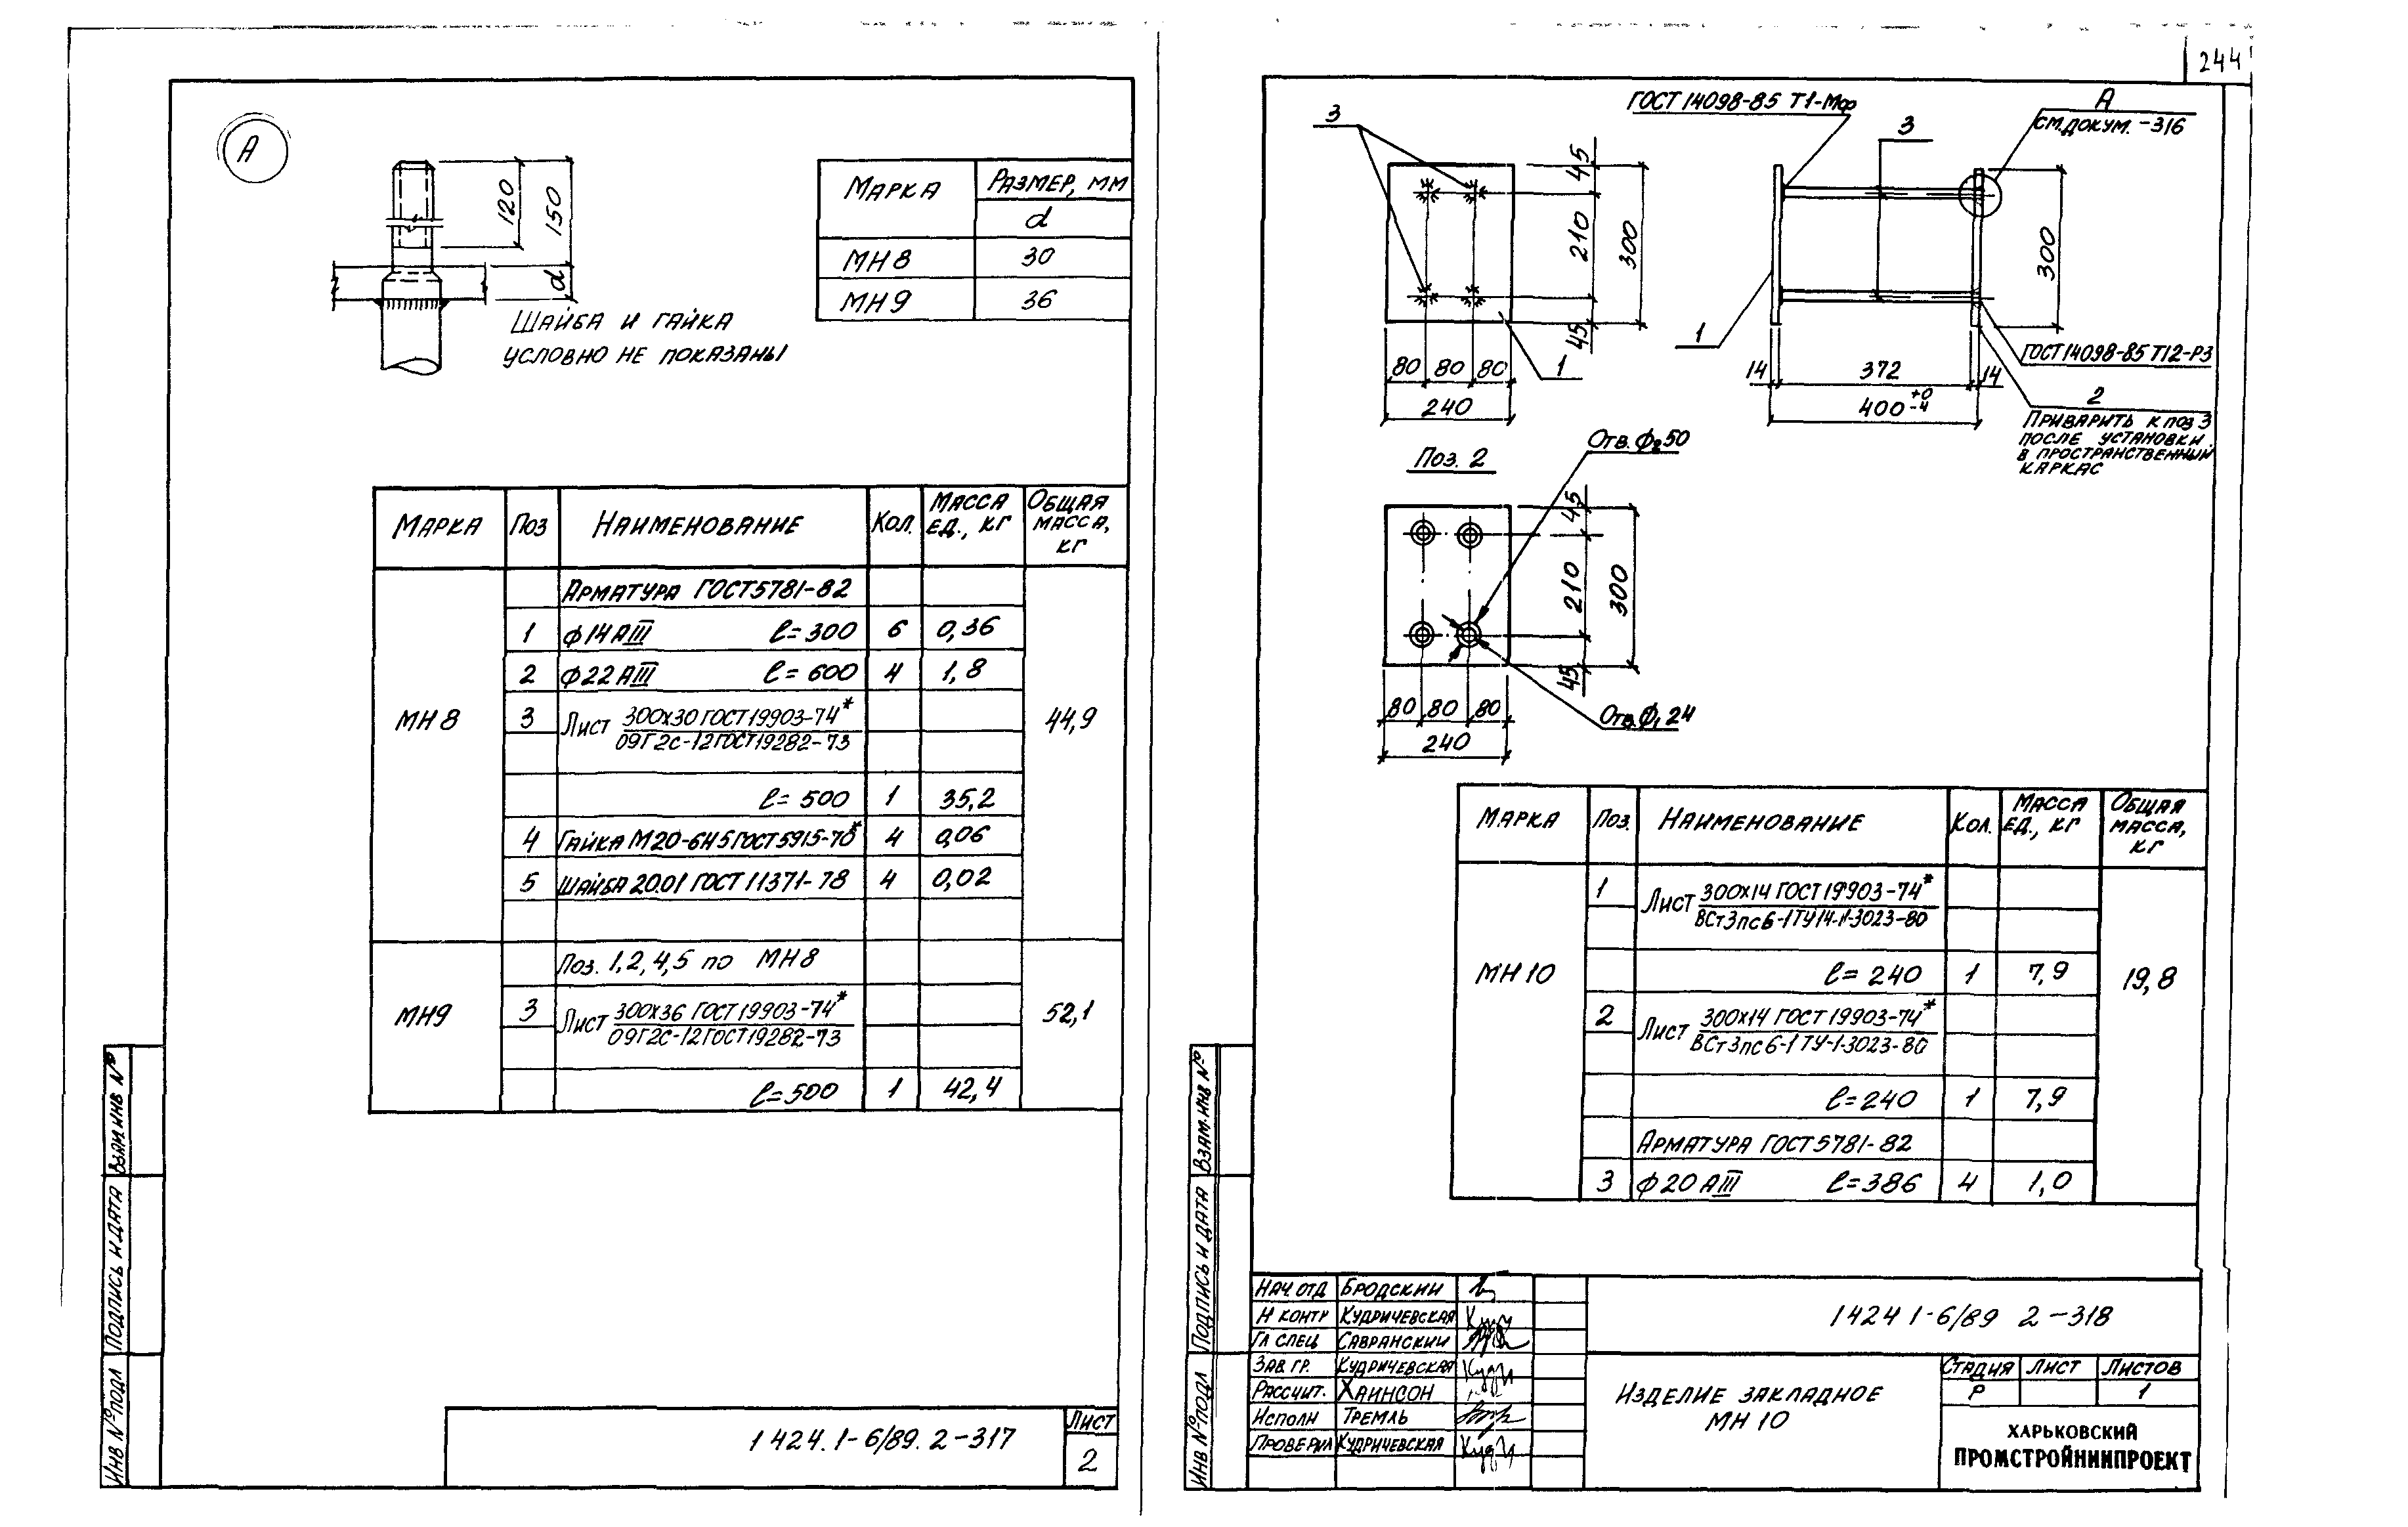 244
А
120
150
d
ШАЙБА И ГАЙКА
УСЛОВНО НЕ ПОКАЗАНЫ
МАРКА РАЗМЕР, ММ
d
МН8 30
МН9 36
МАРКА ПОЗ НАИМЕНОВАНИЕ КОЛ. МАССА ЕД., КГ ОБЩАЯ МАССА, КГ
АРМАТУРА ГОСТ5781-82
1 ф14АIII ℓ=300 6 0,36
2 ф22АIII ℓ=600 4 1,8
МН8 3 ЛИСТ 300х30 ГОСТ19903-74* 44,9
09Г2С-12ГОСТ19282-73
ℓ=500 1 35,2
4 ГАЙКА М20-6Н5ГОСТ5915-70* 4 0,06
5 ШАЙБА 20.01 ГОСТ 11371-78 4 0,02
ПОЗ. 1,2,4,5 ПО МН8
МН9 3 ЛИСТ 300х36 ГОСТ19903-74* 52,1
09Г2С-12ГОСТ19282-73
ℓ=500 1 42,4
ВЗАМ.ИНВ №
ПОДПИСЬ И ДАТА
ИНВ №ПОДЛ
1 424.1-6/89. 2-317
ЛИСТ
2
3
45
210
300
45
80 80 80
240
1
ГОСТ14098-85 Т1-Мф
3
А
СМ.ДОКУМ. -316
300
1
ГОСТ14098-85 Т12-РЗ
14 372 14
400 +0 -4
2
ПРИВАРИТЬ К ПОЗ 3
ПОСЛЕ УСТАНОВКИ
В ПРОСТРАНСТВЕННЫЙ
КАРКАС
ПОЗ. 2
ОТВ.ф₂50
45
210
300
45
80 80 80
240
ОТВ.ф₁24
МАРКА ПОЗ. НАИМЕНОВАНИЕ КОЛ. МАССА ЕД., КГ ОБЩАЯ МАССА, КГ
1 ЛИСТ 300х14 ГОСТ19903-74*
ВСт3пс6-1ТУ14-1-3023-80
МН10 ℓ=240 1 7,9 19,8
2 ЛИСТ 300х14 ГОСТ19903-74*
ВСт3пс6-1ТУ-1-3023-80
ℓ=240 1 7,9
АРМАТУРА ГОСТ5781-82
3 ф20АIII ℓ=386 4 1,0
ВЗАМ.ИНВ №
ПОДПИСЬ И ДАТА
ИНВ №ПОДЛ
НАЧ.ОТД БРОДСКИЙ
Н КОНТР КУДРИЧЕВСКАЯ
ГЛ СПЕЦ САВРАНСКИЙ
ЗАВ.ГР. КУДРИЧЕВСКАЯ
РАССЧИТ. ХАИНСОН
ИСПОЛН ТРЕМЛЬ
ПРОВЕРИЛ КУДРИЧЕВСКАЯ
1424 1-6/89 2-318
ИЗДЕЛИЕ ЗАКЛАДНОЕ
МН 10
СТАДИЯ ЛИСТ ЛИСТОВ
Р 1
ХАРЬКОВСКИЙ
ПРОМСТРОЙНИИПРОЕКТ